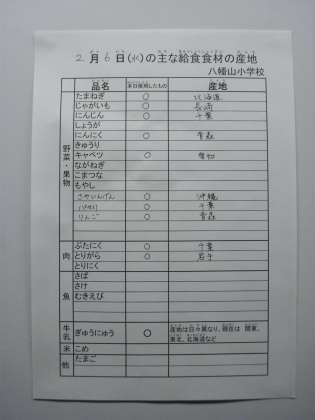 2月6日(水)の主な給食食材の産地
八幡山小学校
品名 本日使用したもの 産地
野菜・果物
たまねぎ ○ 北海道
じゃがいも ○ 長崎
にんじん ○ 千葉
しょうが
にんにく ○ 青森
きゅうり
キャベツ ○ 愛知
ながねぎ
こまつな
もやし
さやいんげん ○ 沖縄
パセリ ○ 千葉
りんご ○ 青森
肉
ぶたにく ○ 千葉
とりがら ○ 岩手
とりにく
魚
さば
さけ
むきえび
牛乳
ぎゅうにゅう ○ 産地は日々異なり、現在は 関東、
東北、北海道など
米 こめ
他 たまご